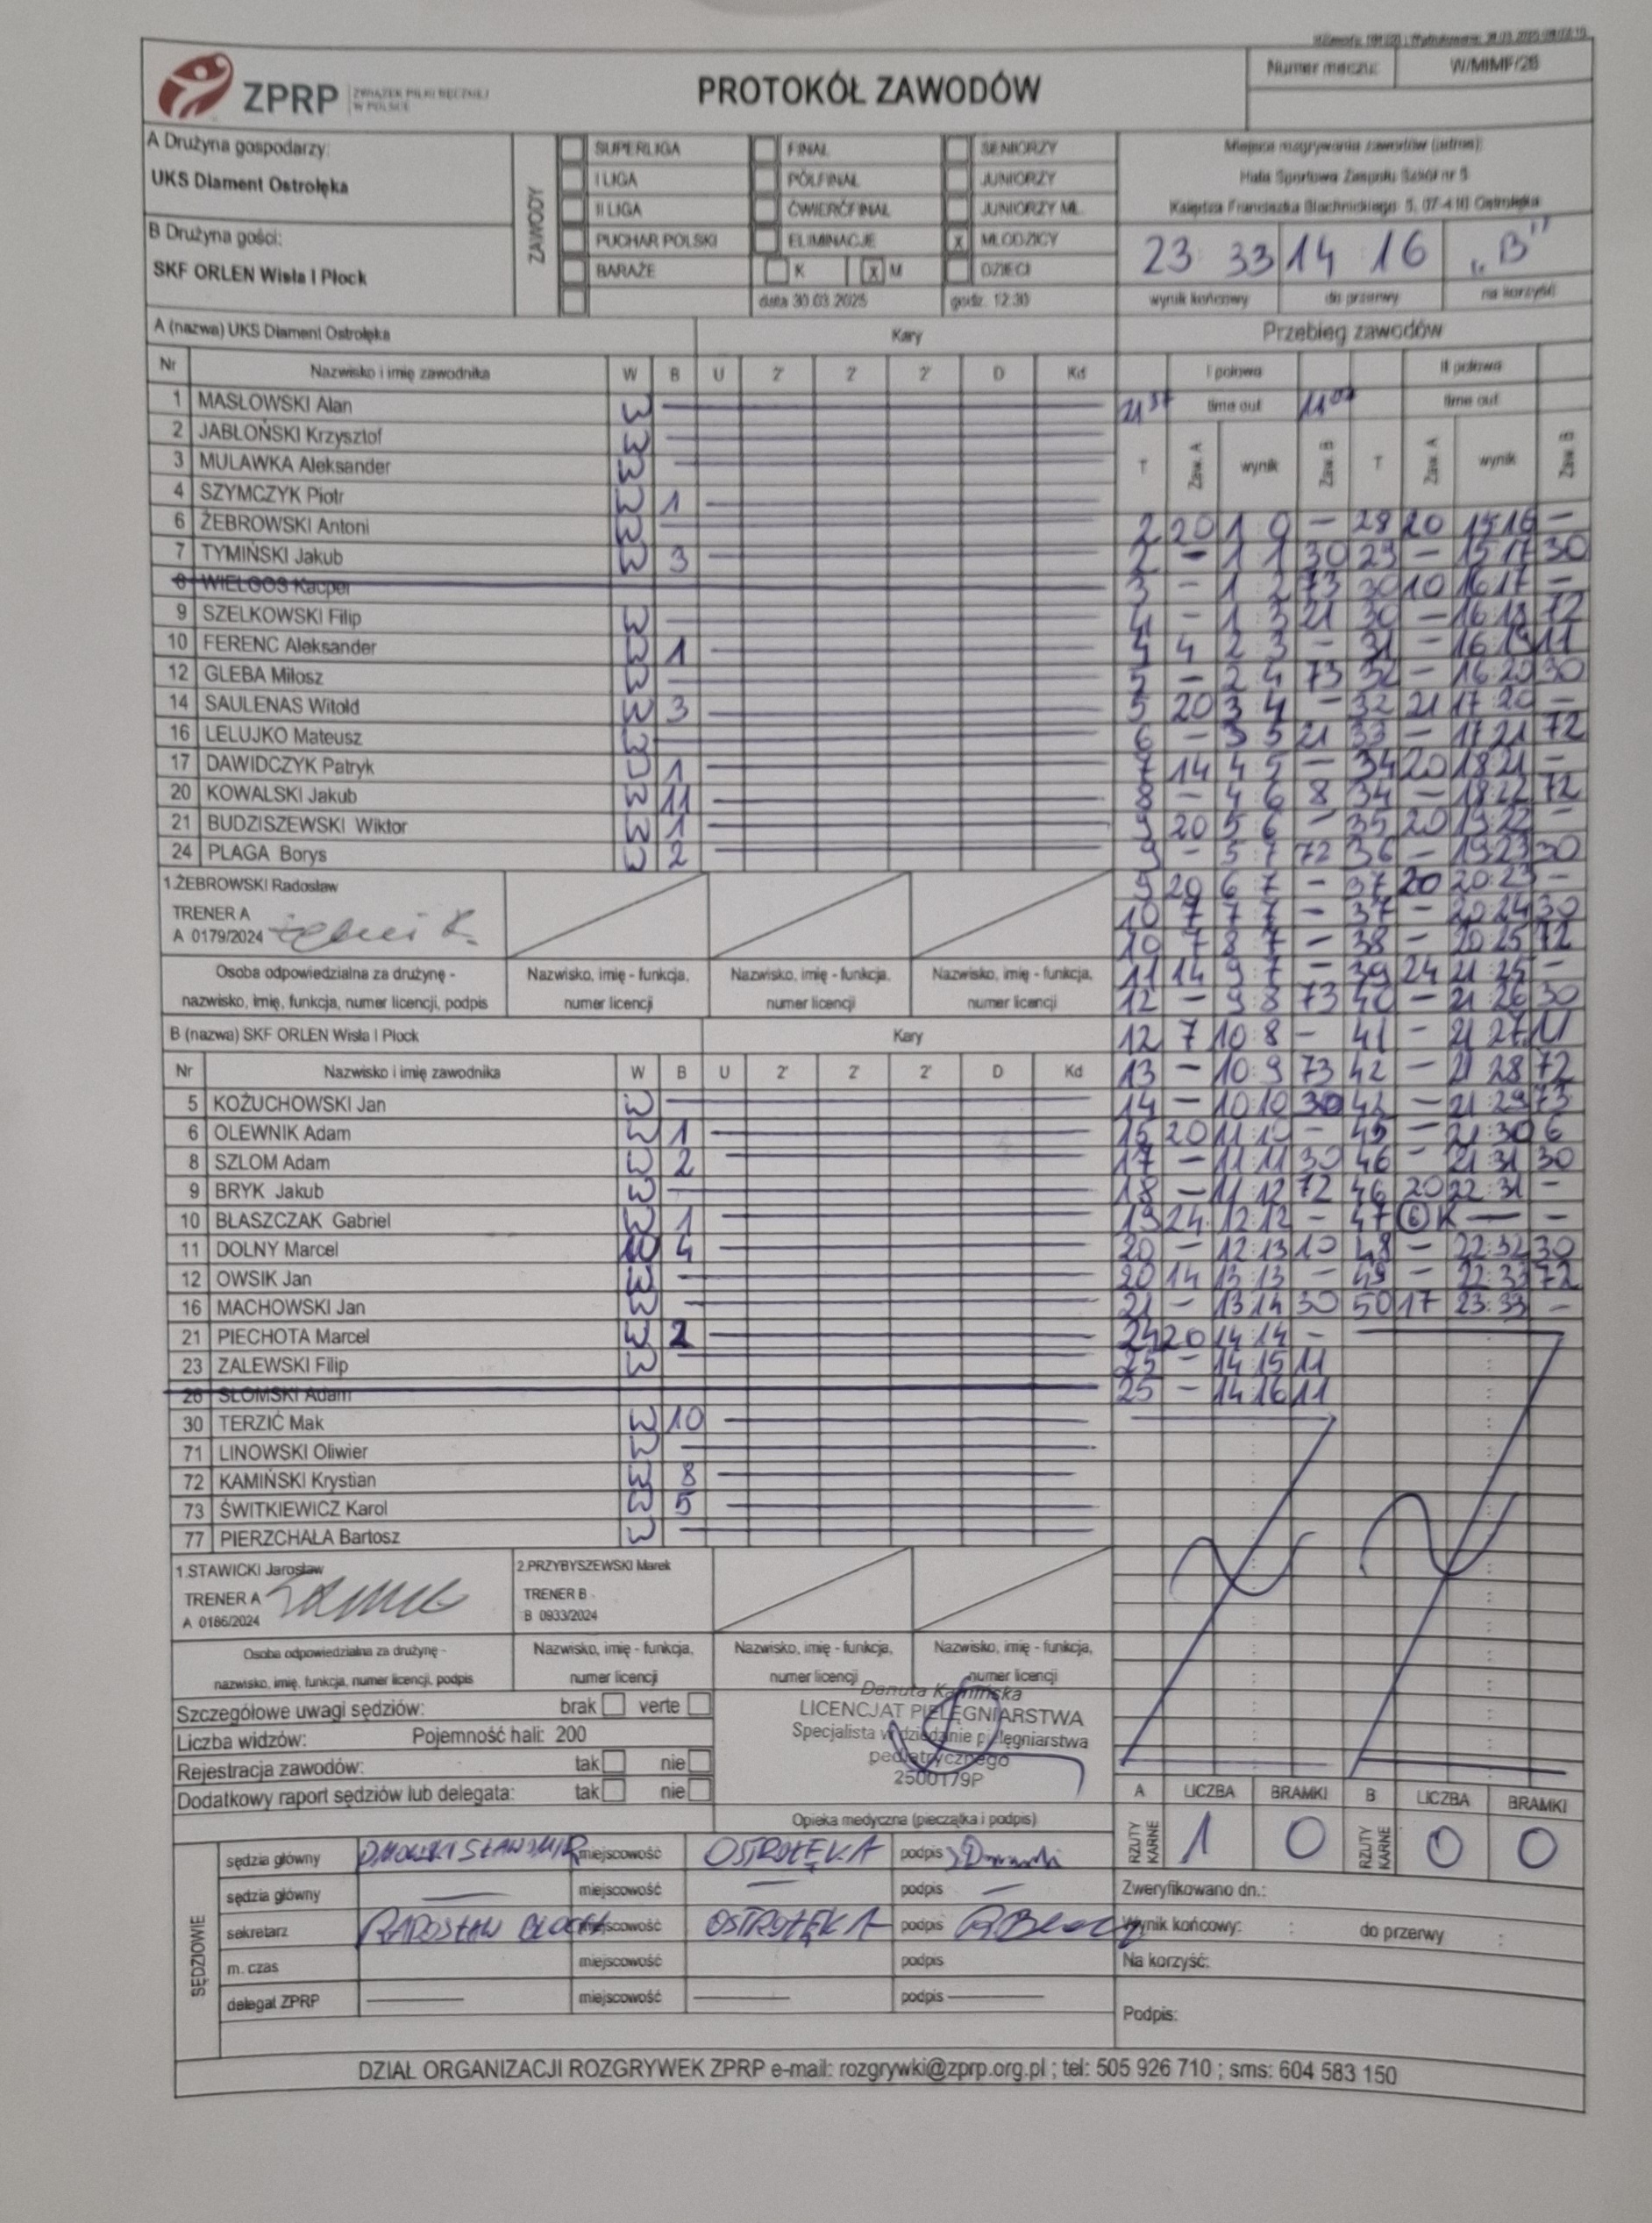 ZPRP ZWIĄZEK PIŁKI RĘCZNEJ
W POLSCE
PROTOKÓŁ ZAWODÓW
Numer meczu: W/MłMF/28
A Drużyna gospodarzy:
UKS Diament Ostrołęka
B Drużyna gości:
SKF ORLEN Wisła I Płock
ZAWODY
SUPERLIGA FINAŁ SENIORZY
I LIGA PÓŁFINAŁ JUNIORZY
II LIGA ĆWIERĆFINAŁ JUNIORZY MŁ.
PUCHAR POLSKI ELIMINACJE x MŁODZICY
BARAŻE K x M DZIECI
data 30.03.2025 godz. 12:30
Miejsce rozgrywania zawodów (adres):
Hala Sportowa Zespołu Szkół nr 5
Księdza Franciszka Blachnickiego 5, 07-410 Ostrołęka
23 : 33 14 : 16 „B"
wynik końcowy do przerwy na korzyść
A (nazwa) UKS Diament Ostrołęka Kary
Nr Nazwisko i imię zawodnika W B U 2' 2' 2' D Kd
1 MASŁOWSKI Alan W
2 JABŁOŃSKI Krzysztof W
3 MULAWKA Aleksander W
4 SZYMCZYK Piotr W 1
6 ŻEBROWSKI Antoni W
7 TYMIŃSKI Jakub W 3
8 WIELGOS Kacper
9 SZELKOWSKI Filip W
10 FERENC Aleksander W 1
12 GLEBA Miłosz W
14 SAULENAS Witold W 3
16 LELUJKO Mateusz W
17 DAWIDCZYK Patryk W 1
20 KOWALSKI Jakub W 11
21 BUDZISZEWSKI Wiktor W 1
24 PLAGA Borys W 2
1.ŻEBROWSKI Radosław
TRENER A
A 0179/2024
Osoba odpowiedzialna za drużynę -
nazwisko, imię, funkcja, numer licencji, podpis
Nazwisko, imię - funkcja,
numer licencji
Nazwisko, imię - funkcja,
numer licencji
Nazwisko, imię - funkcja,
numer licencji
B (nazwa) SKF ORLEN Wisła I Płock Kary
Nr Nazwisko i imię zawodnika W B U 2' 2' 2' D Kd
5 KOŻUCHOWSKI Jan W
6 OLEWNIK Adam W 1
8 SZLOM Adam W 2
9 BRYK Jakub W
10 BŁASZCZAK Gabriel W 1
11 DOLNY Marcel W 4
12 OWSIK Jan W
16 MACHOWSKI Jan W
21 PIECHOTA Marcel W 2
23 ZALEWSKI Filip W
28 SŁOMSKI Adam
30 TERZIĆ Mak W 10
71 LINOWSKI Oliwier W
72 KAMIŃSKI Krystian W 8
73 ŚWITKIEWICZ Karol W 5
77 PIERZCHAŁA Bartosz W
1.STAWICKI Jarosław
TRENER A
A 0186/2024
2.PRZYBYSZEWSKI Marek
TRENER B
B 0933/2024
Osoba odpowiedzialna za drużynę -
nazwisko, imię, funkcja, numer licencji, podpis
Nazwisko, imię - funkcja,
numer licencji
Nazwisko, imię - funkcja,
numer licencji
Nazwisko, imię - funkcja,
numer licencji
Przebieg zawodów
I połowa II połowa
21 37 time out 11 07 time out
T Zaw. A wynik Zaw. B T Zaw. A wynik Zaw. B
2 20 1 0 - 28 20 15 16 -
2 - 1 1 30 29 - 15 17 30
3 - 1 2 73 30 10 16 17 -
4 - 1 3 21 30 - 16 18 72
4 4 2 3 - 31 - 16 19 11
5 - 2 4 73 32 - 16 20 30
5 20 3 4 - 32 21 17 20 -
6 - 3 5 21 33 - 17 21 72
7 14 4 5 - 34 20 18 21 -
8 - 4 6 8 34 - 18 22 72
9 20 5 6 - 35 20 19 22 -
9 - 5 7 72 36 - 19 23 30
9 20 6 7 - 37 20 20:23 -
10 7 7 7 - 37 - 20 24 30
10 7 8 7 - 38 - 20 25 72
11 14 9 7 - 39 24 21 25 -
12 - 9 8 73 40 - 21 26 30
12 7 10 8 - 41 - 21 27 11
13 - 10:9 73 42 - 21 28 72
14 - 10:10 30 42 - 21:29 73
15 20 11:10 - 45 - 21:30 6
17 - 11:11 30 46 - 21 31 30
18 - 11:12 72 46 20 22:31 -
19 24 12:12 - 47 6 K - -
20 - 12:13 10 48 - 22:32 30
20 14 13:13 - 49 - 22:33 72
21 - 13 14 30 50 17 23:33 -
24 20 14:14 -
25 - 14 15 11
25 - 14 16 11
Szczegółowe uwagi sędziów: brak verte
Liczba widzów: Pojemność hali: 200
Rejestracja zawodów: tak nie
Dodatkowy raport sędziów lub delegata: tak nie
Danuta Kamińska
LICENCJAT PIELĘGNIARSTWA
Specjalista w dziedzinie pielęgniarstwa
pediatrycznego
2500179P
Opieka medyczna (pieczątka i podpis)
A LICZBA BRAMKI B LICZBA BRAMKI
RZUTY KARNE 1 0 RZUTY KARNE 0 0
SĘDZIOWIE
sędzia główny miejscowość OSTROŁĘKA podpis
sędzia główny miejscowość podpis
sekretarz RADOSŁAW miejscowość OSTROŁĘKA podpis
m. czas miejscowość podpis
delegat ZPRP miejscowość podpis
Zweryfikowano dn.:
Wynik końcowy: : do przerwy :
Na korzyść:
Podpis:
DZIAŁ ORGANIZACJI ROZGRYWEK ZPRP e-mail: rozgrywki@zprp.org.pl ; tel: 505 926 710 ; sms: 604 583 150